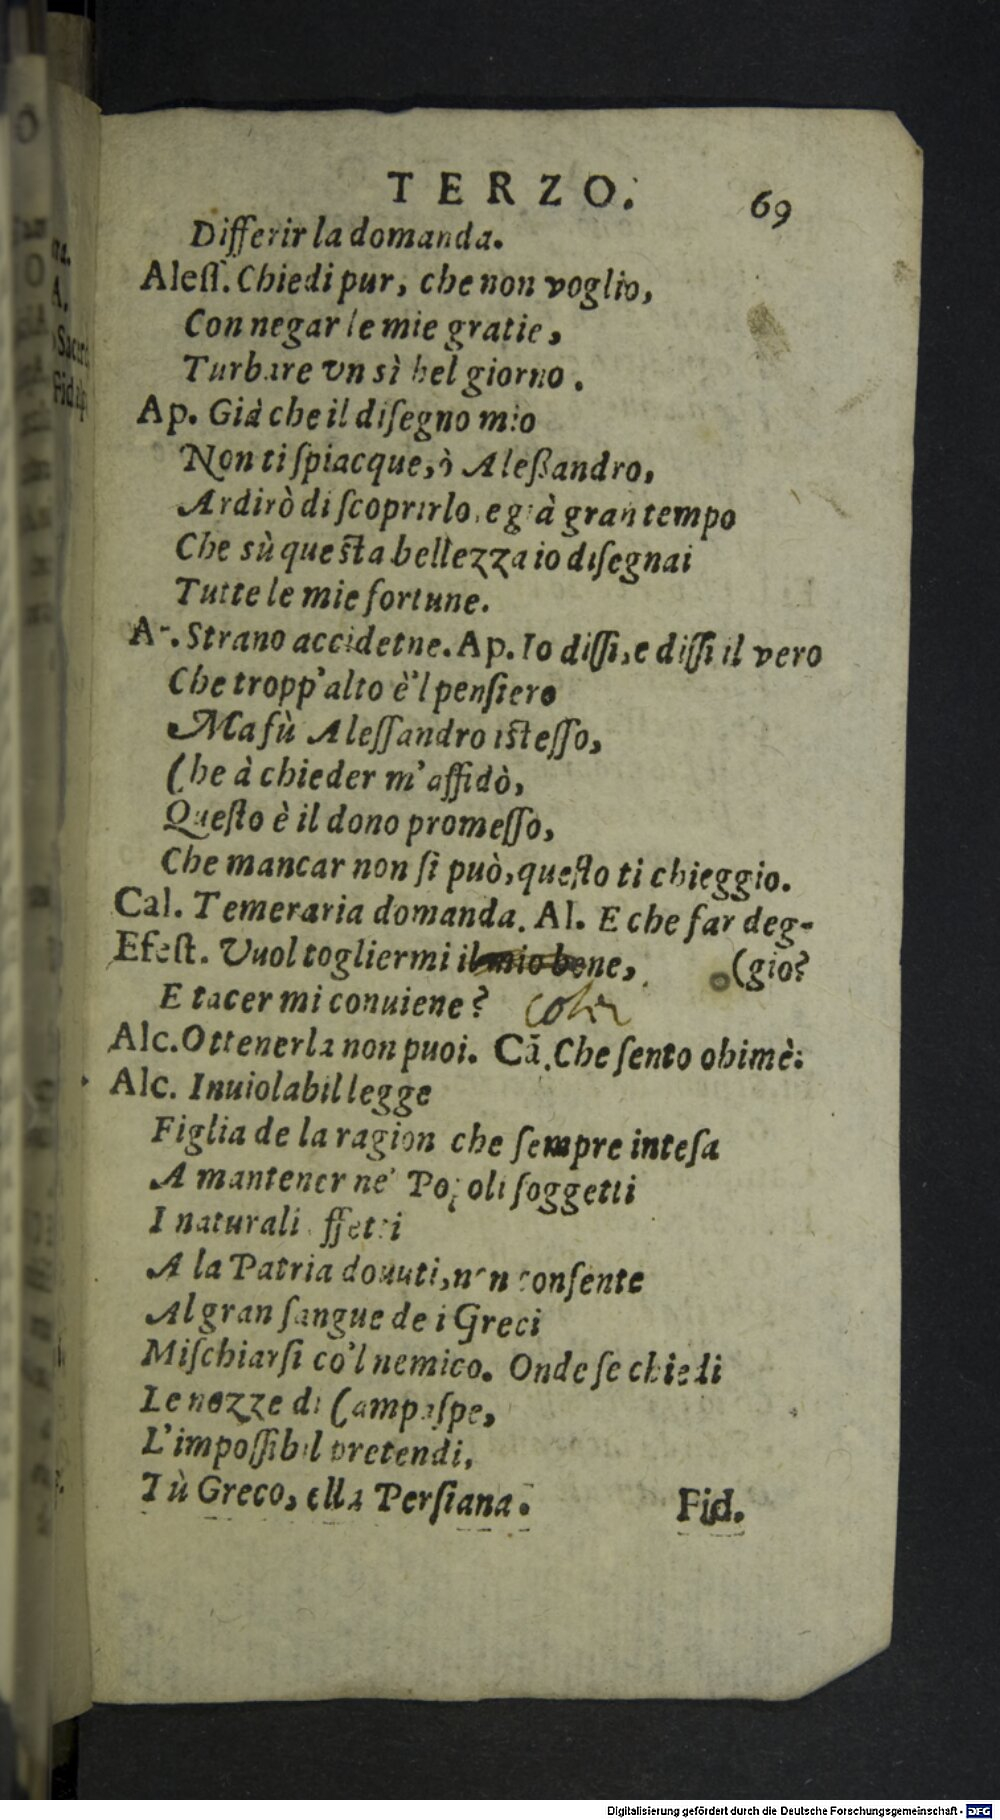 TERZO. 69
Differir la domanda.
Aleſſ. Chiedi pur, che non voglio,
Con negar le mie gratie,
Turbare vn sì bel giorno.
Ap. Già che il diſegno mio
Non ti ſpiacque, ò Aleßandro,
Ardirò di ſcoprirlo, e già gran tempo
Che sù queſta bellezza io diſegnai
Tutte le mie fortune.
A. Strano accidetne. Ap. Io diſſi, e diſſi il vero
Che tropp'alto è'l penſiero
Ma fù Aleſſandro iſteſſo,
Che à chieder m'affidò,
Queſto è il dono promeſſo,
Che mancar non ſi può, queſto ti chieggio.
Cal. Temeraria domanda. Al. E che far deg-
Efeſt. Vuol togliermi il mio bene, (gio?
E tacer mi conuiene?
Alc. Ottenerla non puoi. Cā. Che ſento ohimè:
Alc. Inuiolabil legge
Figlia de la ragion che ſempre inteſa
A mantener ne' Popoli ſoggetti
I naturali affetti
A la Patria douuti, non conſente
Al gran ſangue de i Greci
Miſchiarſi co'l nemico. Onde ſe chiedi
Le nozze di Campaſpe,
L'impoſſibil pretendi,
Tù Greco, ella Perſiana. Fid.
Digitalisierung gefördert durch die Deutsche Forschungsgemeinschaft - DFG